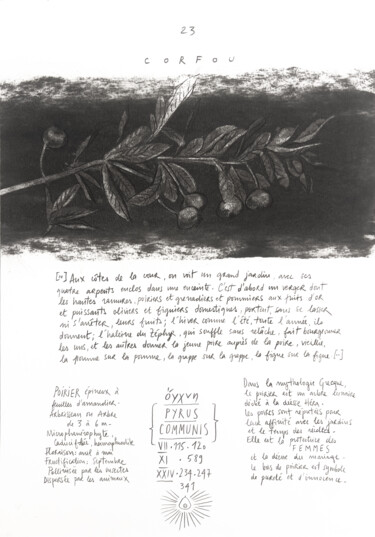 23
CORFOU
[...] Aux côtés de la cour, on voit un grand jardin, avec ses
quatre arpents enclos dans une enceinte. C'est d'abord un verger dont
les hautes ramures, poiriers et grenadiers et pommiers aux fruits d'or
et puissants oliviers et figuiers domestiques, portent, sans se lasser
ni s'arrêter, leurs fruits; l'hiver comme l'été, toute l'année, ils
donnent; l'haleine du Zéphyr, qui souffle sans relâche, fait bourgeonner
les uns, et les autres donner la jeune poire auprès de la poire vieillie,
la pomme sur la pomme, la grappe sur la grappe, la figue sur la figue [...]
POIRIER épineux, à
feuilles d'amandier.
Arbrisseau ou Arbre
de 3 à 6 m.
Microphanérophyte
Caducifolié, hermaphrodite
Floraison: avril à mai
Fructification: Septembre
Pollinisée par les insectes
Dispersée par les animaux
ὄγχνη
PYRUS
COMMUNIS
VII. 115-120
XI. 589
XXIV. 234. 247
341
Dans la mythologie Grecque,
le poirier est un arbre
dédié à la déesse Héra.
les poires sont réputées pour
leur affinité avec les jardins
et le temps des récoltes.
Elle est la protectrice des
FEMMES
et la déesse du mariage.
le bois de poirier est symbole
de pureté et d'innocence.